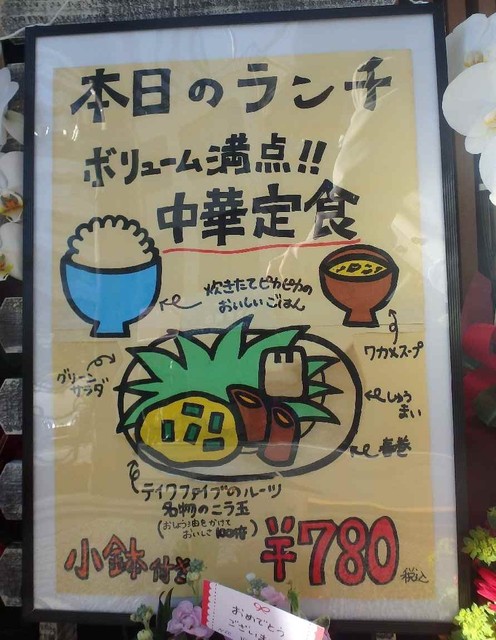 本日のランチ
ボリューム満点!!
中華定食
炊きたてピカピカの
おいしいごはん
ワカメスープ
グリーン
サラダ
しゅう
まい
春巻
テイクファイブのルーツ
名物のニラ玉
(おしょう油をかけて
おいしさ100倍)
小鉢付き
¥780
税込
おめでとう
ございま